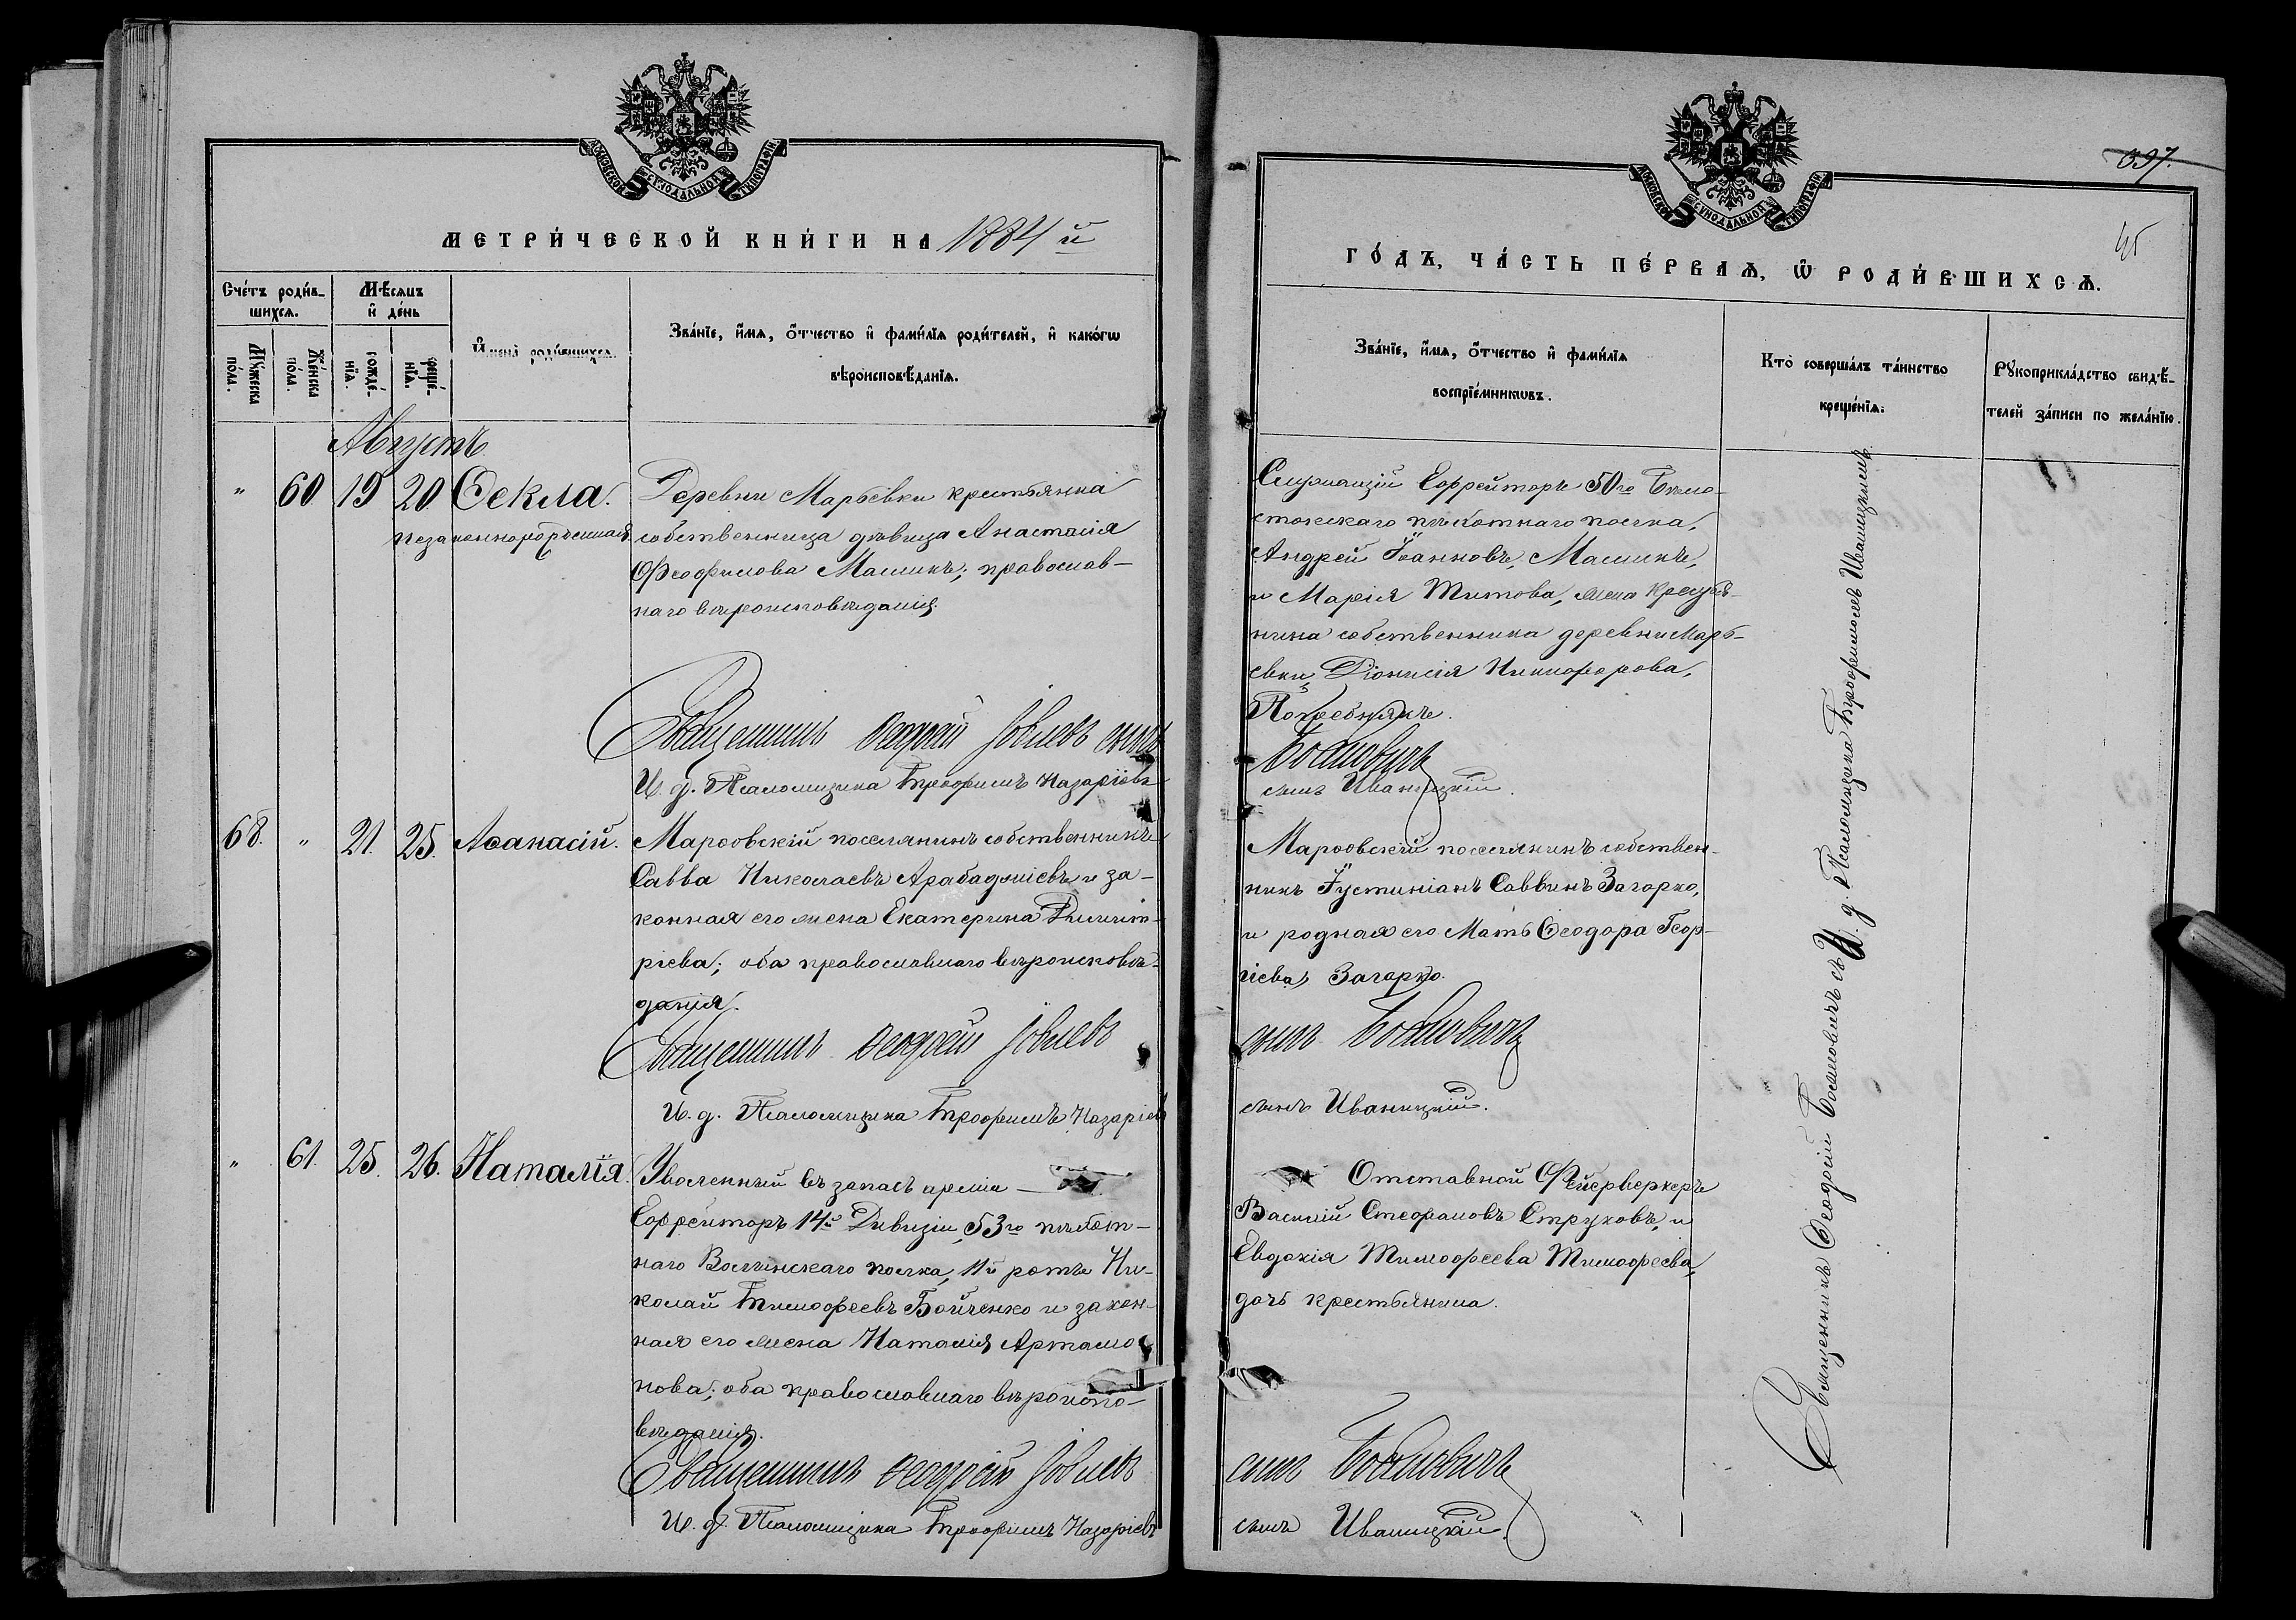 МОСКОВСКОЙ СУНОДАЛЬНОЙ ТИПОГРАФІИ
МЕТРИ́ЧЕСКОЙ КНИ́ГИ НА 1884 й
Сче́тъ роди́в-
шихсѧ.
Мѣсѧцъ
и҆ де́нь
Мꙋ́жеска
по́ла.
Же́нска
по́ла.
рожде́-
нїѧ.
креще́-
нїѧ.
И҆мена̀ роди́вшихсѧ.
Зва́нїе, и҆́мѧ, ѻ҆́тчество и҆ фами́лїѧ роди́телей, и҆ како́гѡ
вѣроисповѣ́данїѧ.
Августъ
" 60 19 20 Ѳекла.
незаконнорожденная.
Деревни Марьевки крестьянка
собственница дѣвица Анастасія
Ѳеофилова Машикъ; православ-
наго вѣроисповѣданія.
Священникъ Ѳеодосій Іовлевъ сынъ
И. д. Псаломщика Трофимъ Назаріевъ
68. " 21. 25. Аѳанасій.
Марфовскій поселянинъ собственникъ
Савва Николаевъ Арабаджіевъ и за-
конная его жена Екатерина Димит-
ріева; оба православнаго вѣроисповѣ-
данія.
Священникъ Ѳеодосій Іовлевъ
И. д. Псаломщика Трофимъ Назаріевъ
" 61. 25. 26. Наталія.
Уволенный въ запасъ арміи —
Ефрейторъ 14й Дивизіи, 53го пѣхот-
наго Волынскаго полка, 11й роты Ни-
колай Тимофеевъ Бойченко и закон-
ная его жена Наталія Артамо-
нова; оба православнаго вѣроиспо-
вѣданія.
Священникъ Ѳеодосій Іовлевъ
И. д. Псаломщика Трофимъ Назаріевъ
МОСКОВСКОЙ СУНОДАЛЬНОЙ ТИПОГРАФІИ
697.
45
ГО́ДЪ, ЧА́СТЬ ПЕ́РВАѦ, Ѡ҆ РОДИ́ВШИХСѦ.
Зва́нїе, и҆́мѧ, ѻ҆́тчество и҆ фами́лїѧ
воспрїе́мникѡвъ.
Кто̀ соверша́лъ та́инство
креще́нїѧ.
Рꙋкоприкла́дство свидѣ́-
телей за́писи по жела́нїю.
Служащій Ефрейторъ 50го Бѣло-
стокскаго пѣхотнаго полка,
Андрей Іоанновъ, Машикъ,
и Марія Титова, жена крестья-
нина собственника деревни Марь-
евки, Діонисія Никифорова,
Погребнякъ.
Божковичъ
сынъ Иваницкій.
Марфовскій поселянинъ собствен-
никъ Іустиніанъ Саввинъ Загорко,
и родная его Мать Ѳеодора Геор-
гіева, Загорко.
сынъ Божковичъ
сынъ Иваницкій.
Отставной Фейерверкеръ
Василій Стефановъ Струковъ, и
Евдокія Тимофеева Тимофеева,
дочь крестьянина.
сынъ Божковичъ
сынъ Иваницкій.
Священникъ Ѳеодосій Божковичъ съ И. д. Псаломщика Трофимомъ Иваницкимъ